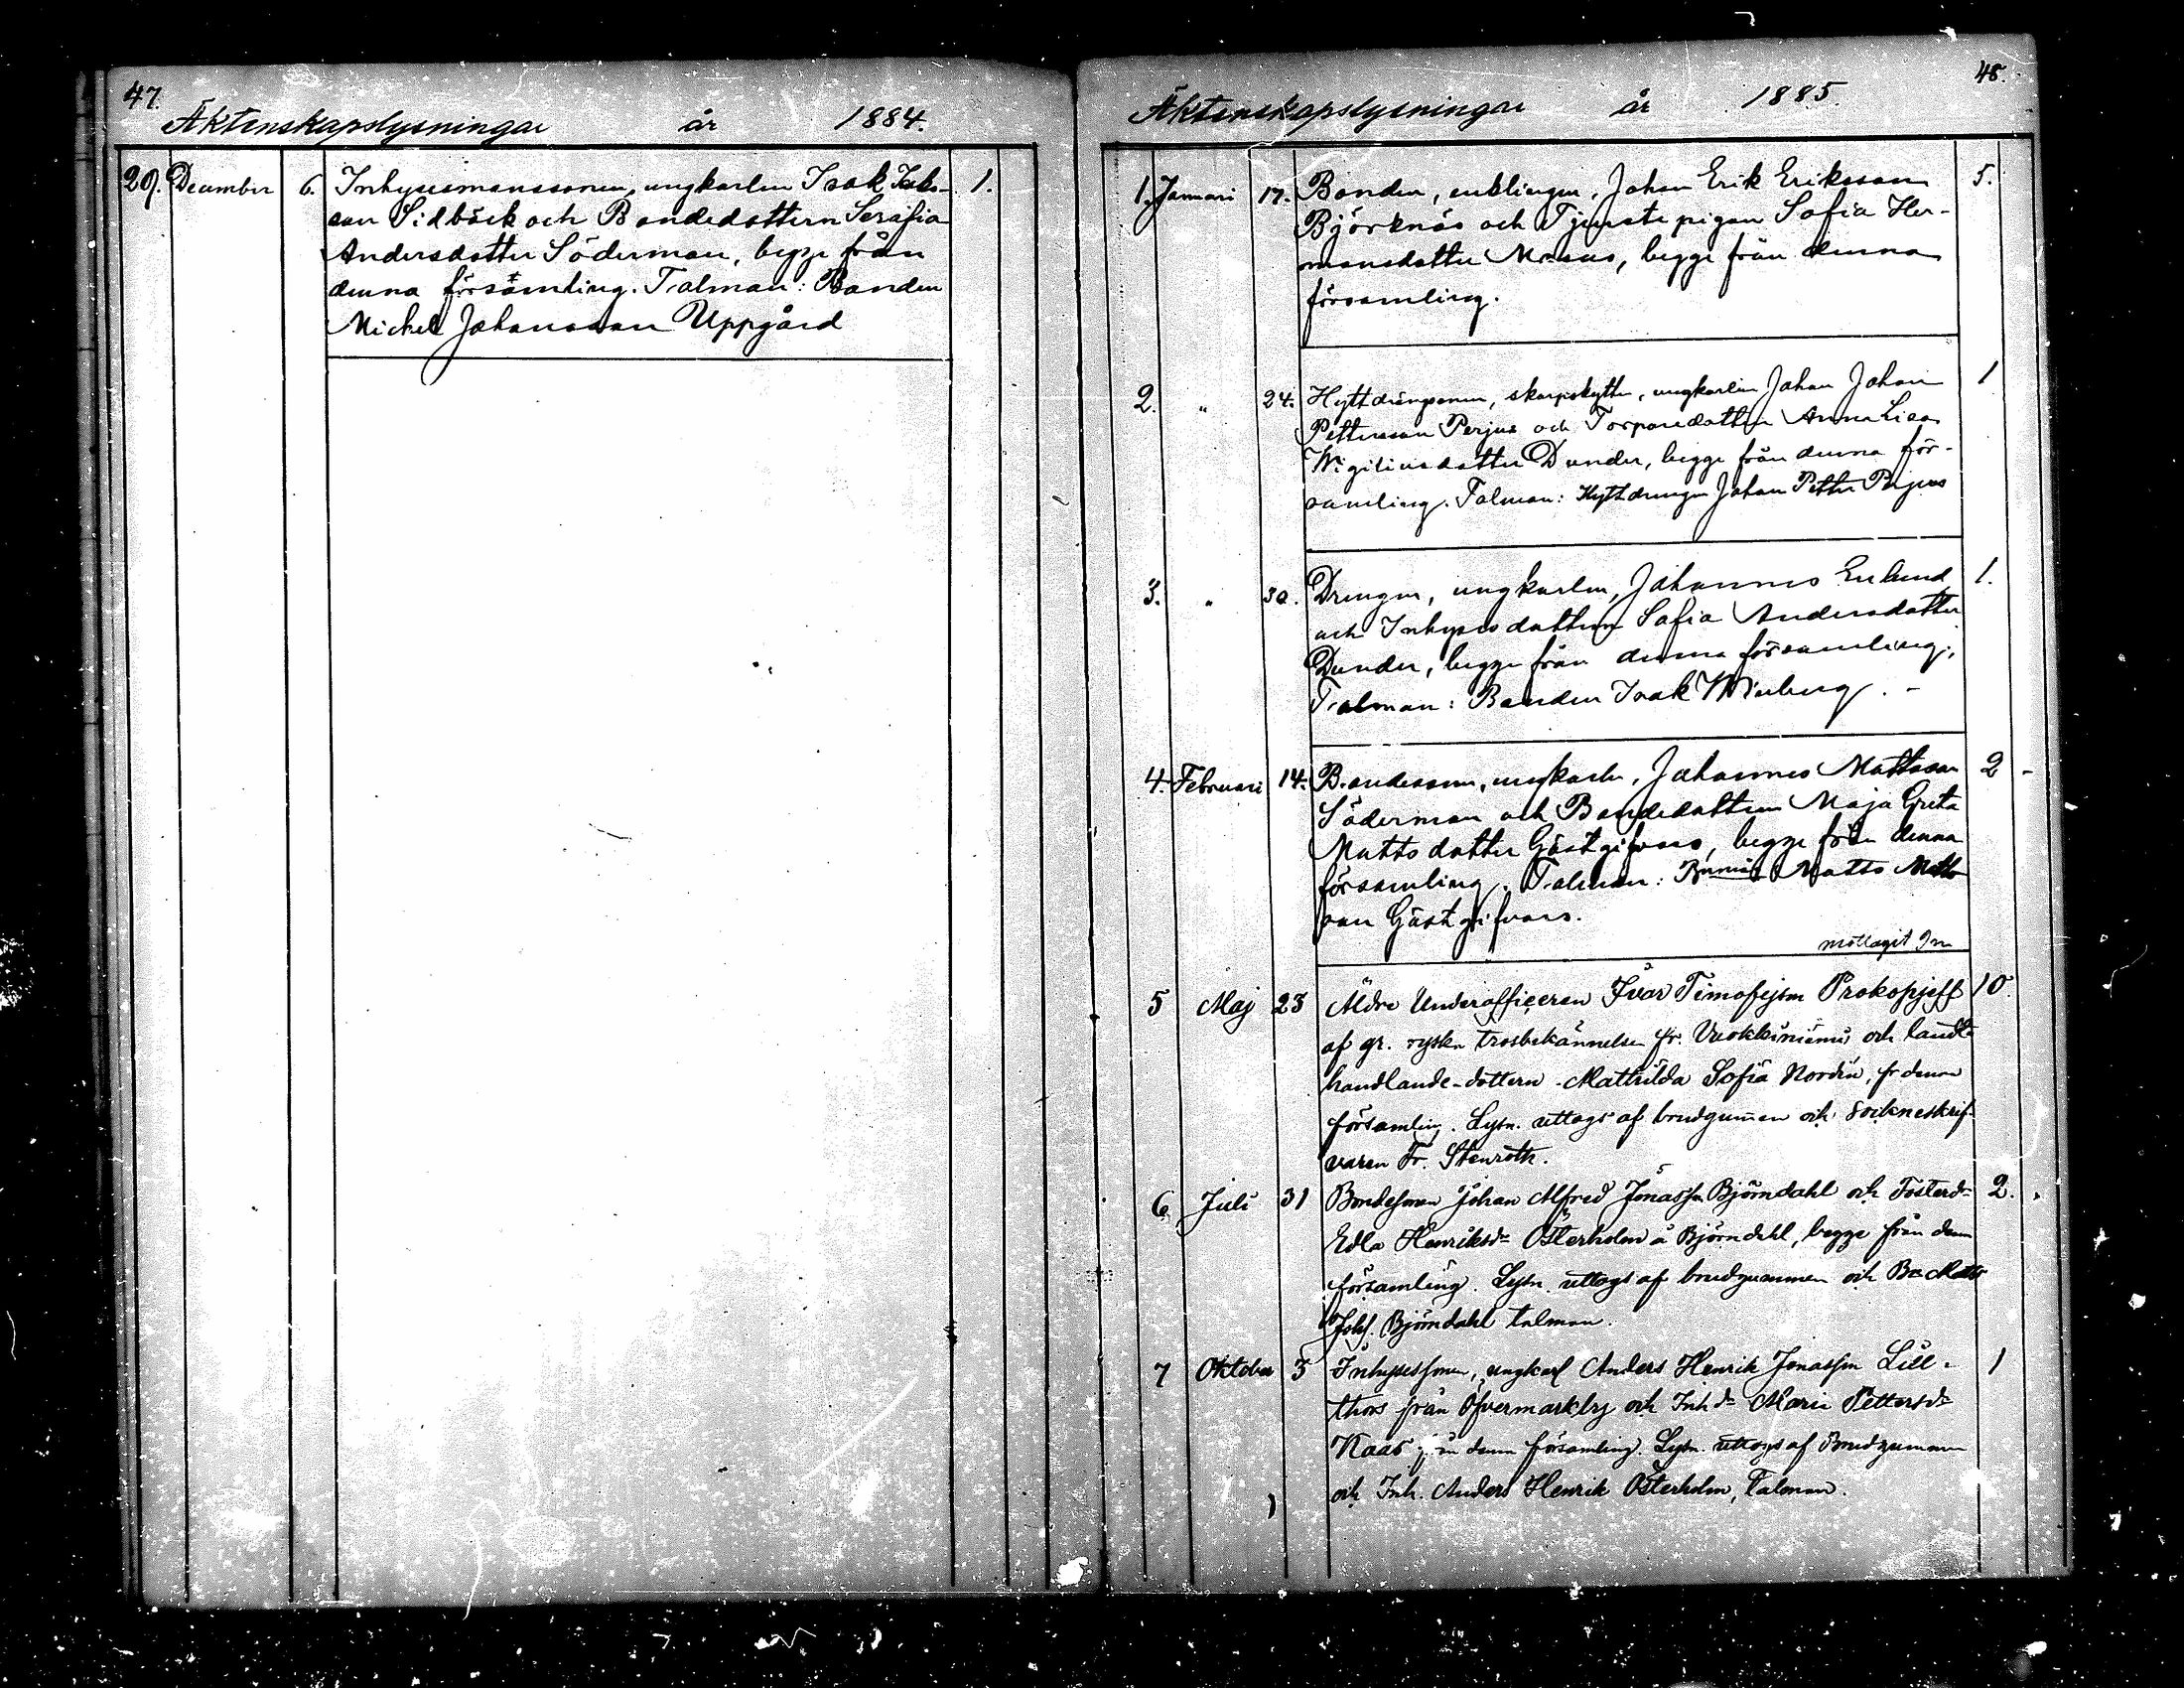 47.
Äktenskapslysningar år 1884.
29. December 6. Inhysesmanssonen, ungkarlen Isak Isaks- 1.
son Sidbäck och Bondedottern Serafia
Andersdotter Söderman, begge från
denna församling. Talman: Bonden
Michel Johansson Uppgård
48.
Äktenskapslysningar år 1885.
1. Januari 17. Bonden, enklingen, Johan Erik Eriksson 5.
Björknäs och Tjenstepigan Sofia Her-
mansdotter, begge från denna
församling.
2. " 24. Hyttdrängsonen, skarpskytten, ungkarlen Johan Johan 1
Pettersson Perjus och Torparedottern Anna Lisa
Wigiliusdotter Dunder, begge från denna för-
samling. Talman: Hyttdrengen Johan Petter Perjus
3. " 30. Drengen, ungkarlen, Johannes Enlund 1.
och Inhysesdottern Sofia Andersdotter
Dunder, begge från denna församling,
Talman: Bonden Isak Wiberg. -
4. Februari 14. Bondesonen, ungkarlen, Johannes Mattsson 2 -
Söderman och Bondedottern Maja Greta
Mattsdotter Gästgifvars, begge från denna
församling. Talman: Matts Matts
son Gästgifvars.
mottagit
5 Maj 23 Äldre Underofficeren Ivar Timofejson Prokopjeff 10.
af gr. ryska trosbekännelsen fr. Vuokkiniemi och landt-
handlande-dottern Mathilda Sofia Nordin, fr denna
församling. Lysn. uttogs af brudgummen och Sockneskrif-
varen Fr. Stenroth.
6 Juli 31 Bondesonen Johan Alfred Jonasson Björndahl och Fosterd- 2.
Edla Henriksdr Österholm å Björndahl, begge från denna
församling. Lysn. uttogs af brudgummen och Bn Matts
Johs. Björndahl talman.
7 Oktober 3 Inhysessonen, ungkarl Anders Henrik Jonasson Lill- 1
thors från Öfvermarkby och Inhdr Maria Pettersdr
Kaas från denna församling. Lysn. uttogs af Brudgummen
och Inh. Anders Henrik Österholm, Talman.